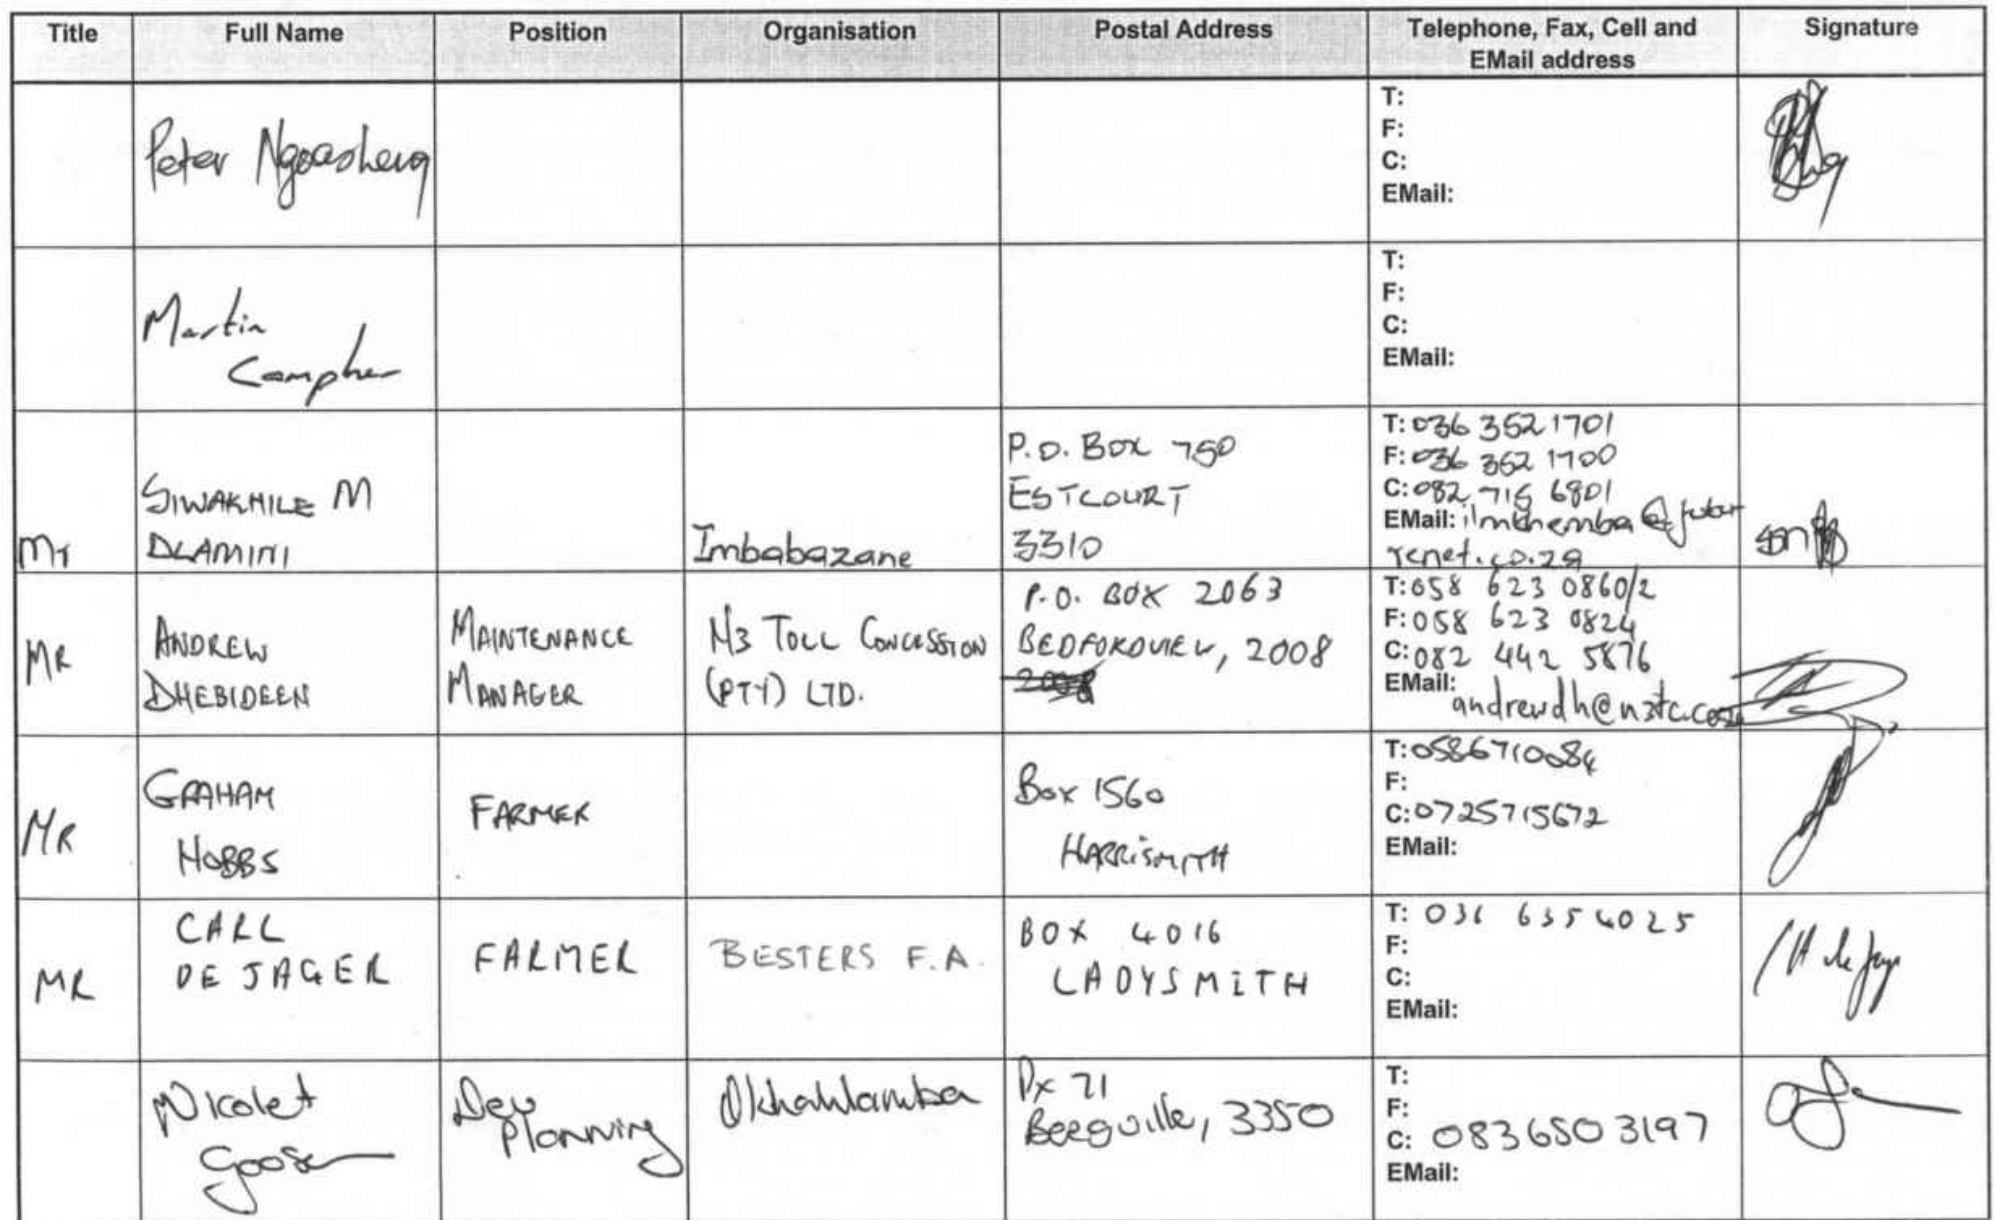 Title Full Name Position Organisation Postal Address Telephone, Fax, Cell and Signature
EMail address
Peter Ngoasheng
T:
F:
C:
EMail:
Martin
Campher
T:
F:
C:
EMail:
Mr
SIWAKHILE M
DLAMINI
Imbabazane
P.O. Box 750
ESTCOURT
3310
T: 036 352 1701
F: 036 352 1700
C: 082 715 6801
EMail:
MR
ANDREW
DHEBIDEEN
MAINTENANCE
MANAGER
N3 TOLL CONCESSION
(PTY) LTD.
P.O. BOX 2063
BEDFORDVIEW, 2008
T: 058 623 0860/2
F: 058 623 0824
C: 082 442 5876
EMail:
andrewdh@n3tc.co.za
MR
GRAHAM
HOBBS
FARMER
Box 1560
HARRISMITH
T: 0586710084
F:
C: 0725715672
EMail:
MR
CARL
DE JAGER
FARMER
BESTERS F.A.
BOX 4016
LADYSMITH
T: 036 6354025
F:
C:
EMail:
Nicolet
Goosen
Dev
Planning
Okhahlamba
Px 71
Bergville, 3350
T:
F:
C: 083 650 3197
EMail: